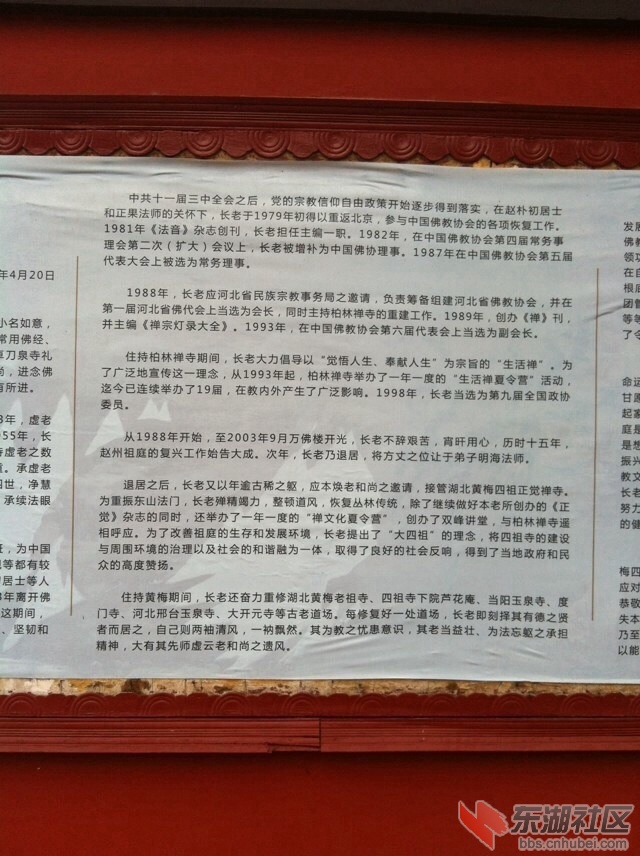 年4月20日
小名如意，
常用佛经、
草刀泉寺礼
尚，进念佛
有所进。
3年，虚老
955年，长
寺虚老之数
重。承虚老
四世，净慧
承续法眼
，为中国
等都有较
居士等人
年离开佛
这期间，
、坚韧和
中共十一届三中全会之后，党的宗教信仰自由政策开始逐步得到落实，在赵朴初居士
和正果法师的关怀下，长老于1979年初得以重返北京，参与中国佛教协会的各项恢复工作。
1981年《法音》杂志创刊，长老担任主编一职。1982年，在中国佛教协会第四届常务事
理会第二次（扩大）会议上，长老被增补为中国佛协理事。1987年在中国佛教协会第五届
代表大会上被选为常务理事。
1988年，长老应河北省民族宗教事务局之邀请，负责筹备组建河北省佛教协会，并在
第一届河北省佛代会上当选为会长，同时主持柏林禅寺的重建工作。1989年，创办《禅》刊，
并主编《禅宗灯录大全》。1993年，在中国佛教协会第六届代表会上当选为副会长。
住持柏林禅寺期间，长老大力倡导以“觉悟人生、奉献人生”为宗旨的“生活禅”。为
了广泛地宣传这一理念，从1993年起，柏林禅寺举办了一年一度的“生活禅夏令营”活动，
迄今已连续举办了19届，在教内外产生了广泛影响。1998年，长老当选为第九届全国政协
委员。
从1988年开始，至2003年9月万佛楼开光，长老不辞艰苦，宵旰用心，历时十五年，
赵州祖庭的复兴工作始告大成。次年，长老乃退居，将方丈之位让于弟子明海法师。
退居之后，长老又以年逾古稀之躯，应本焕老和尚之邀请，接管湖北黄梅四祖正觉禅寺。
为重振东山法门，长老殚精竭力，整顿道风，恢复丛林传统，除了继续做好本老所创办的《正
觉》杂志的同时，还举办了一年一度的“禅文化夏令营”，创办了双峰讲堂，与柏林禅寺遥
相呼应。为了改善祖庭的生存和发展环境，长老提出了“大四祖”的理念，将四祖寺的建设
与周围环境的治理以及社会的和谐融为一体，取得了良好的社会反响，得到了当地政府和民
众的高度赞扬。
住持黄梅期间，长老还奋力重修湖北黄梅老祖寺、四祖寺下院芦花庵、当阳玉泉寺、度
门寺、河北邢台玉泉寺、大开元寺等古老道场。每修复好一处道场，长老即刻择其有德之贤
者而居之，自己则两袖清风，一衲飘然。其为教之忧患意识，其老当益壮、为法忘躯之承担
精神，大有其先师虚云老和尚之遗风。
发展
佛教
领功
在自
根底
团管
等等
了令
命运
甘愿
起家
庭是
是想
振兴
教文
长老
努力
的健
梅四
应对
恭敬
失本
乃至
以能
东湖社区
bbs.cnhubei.com